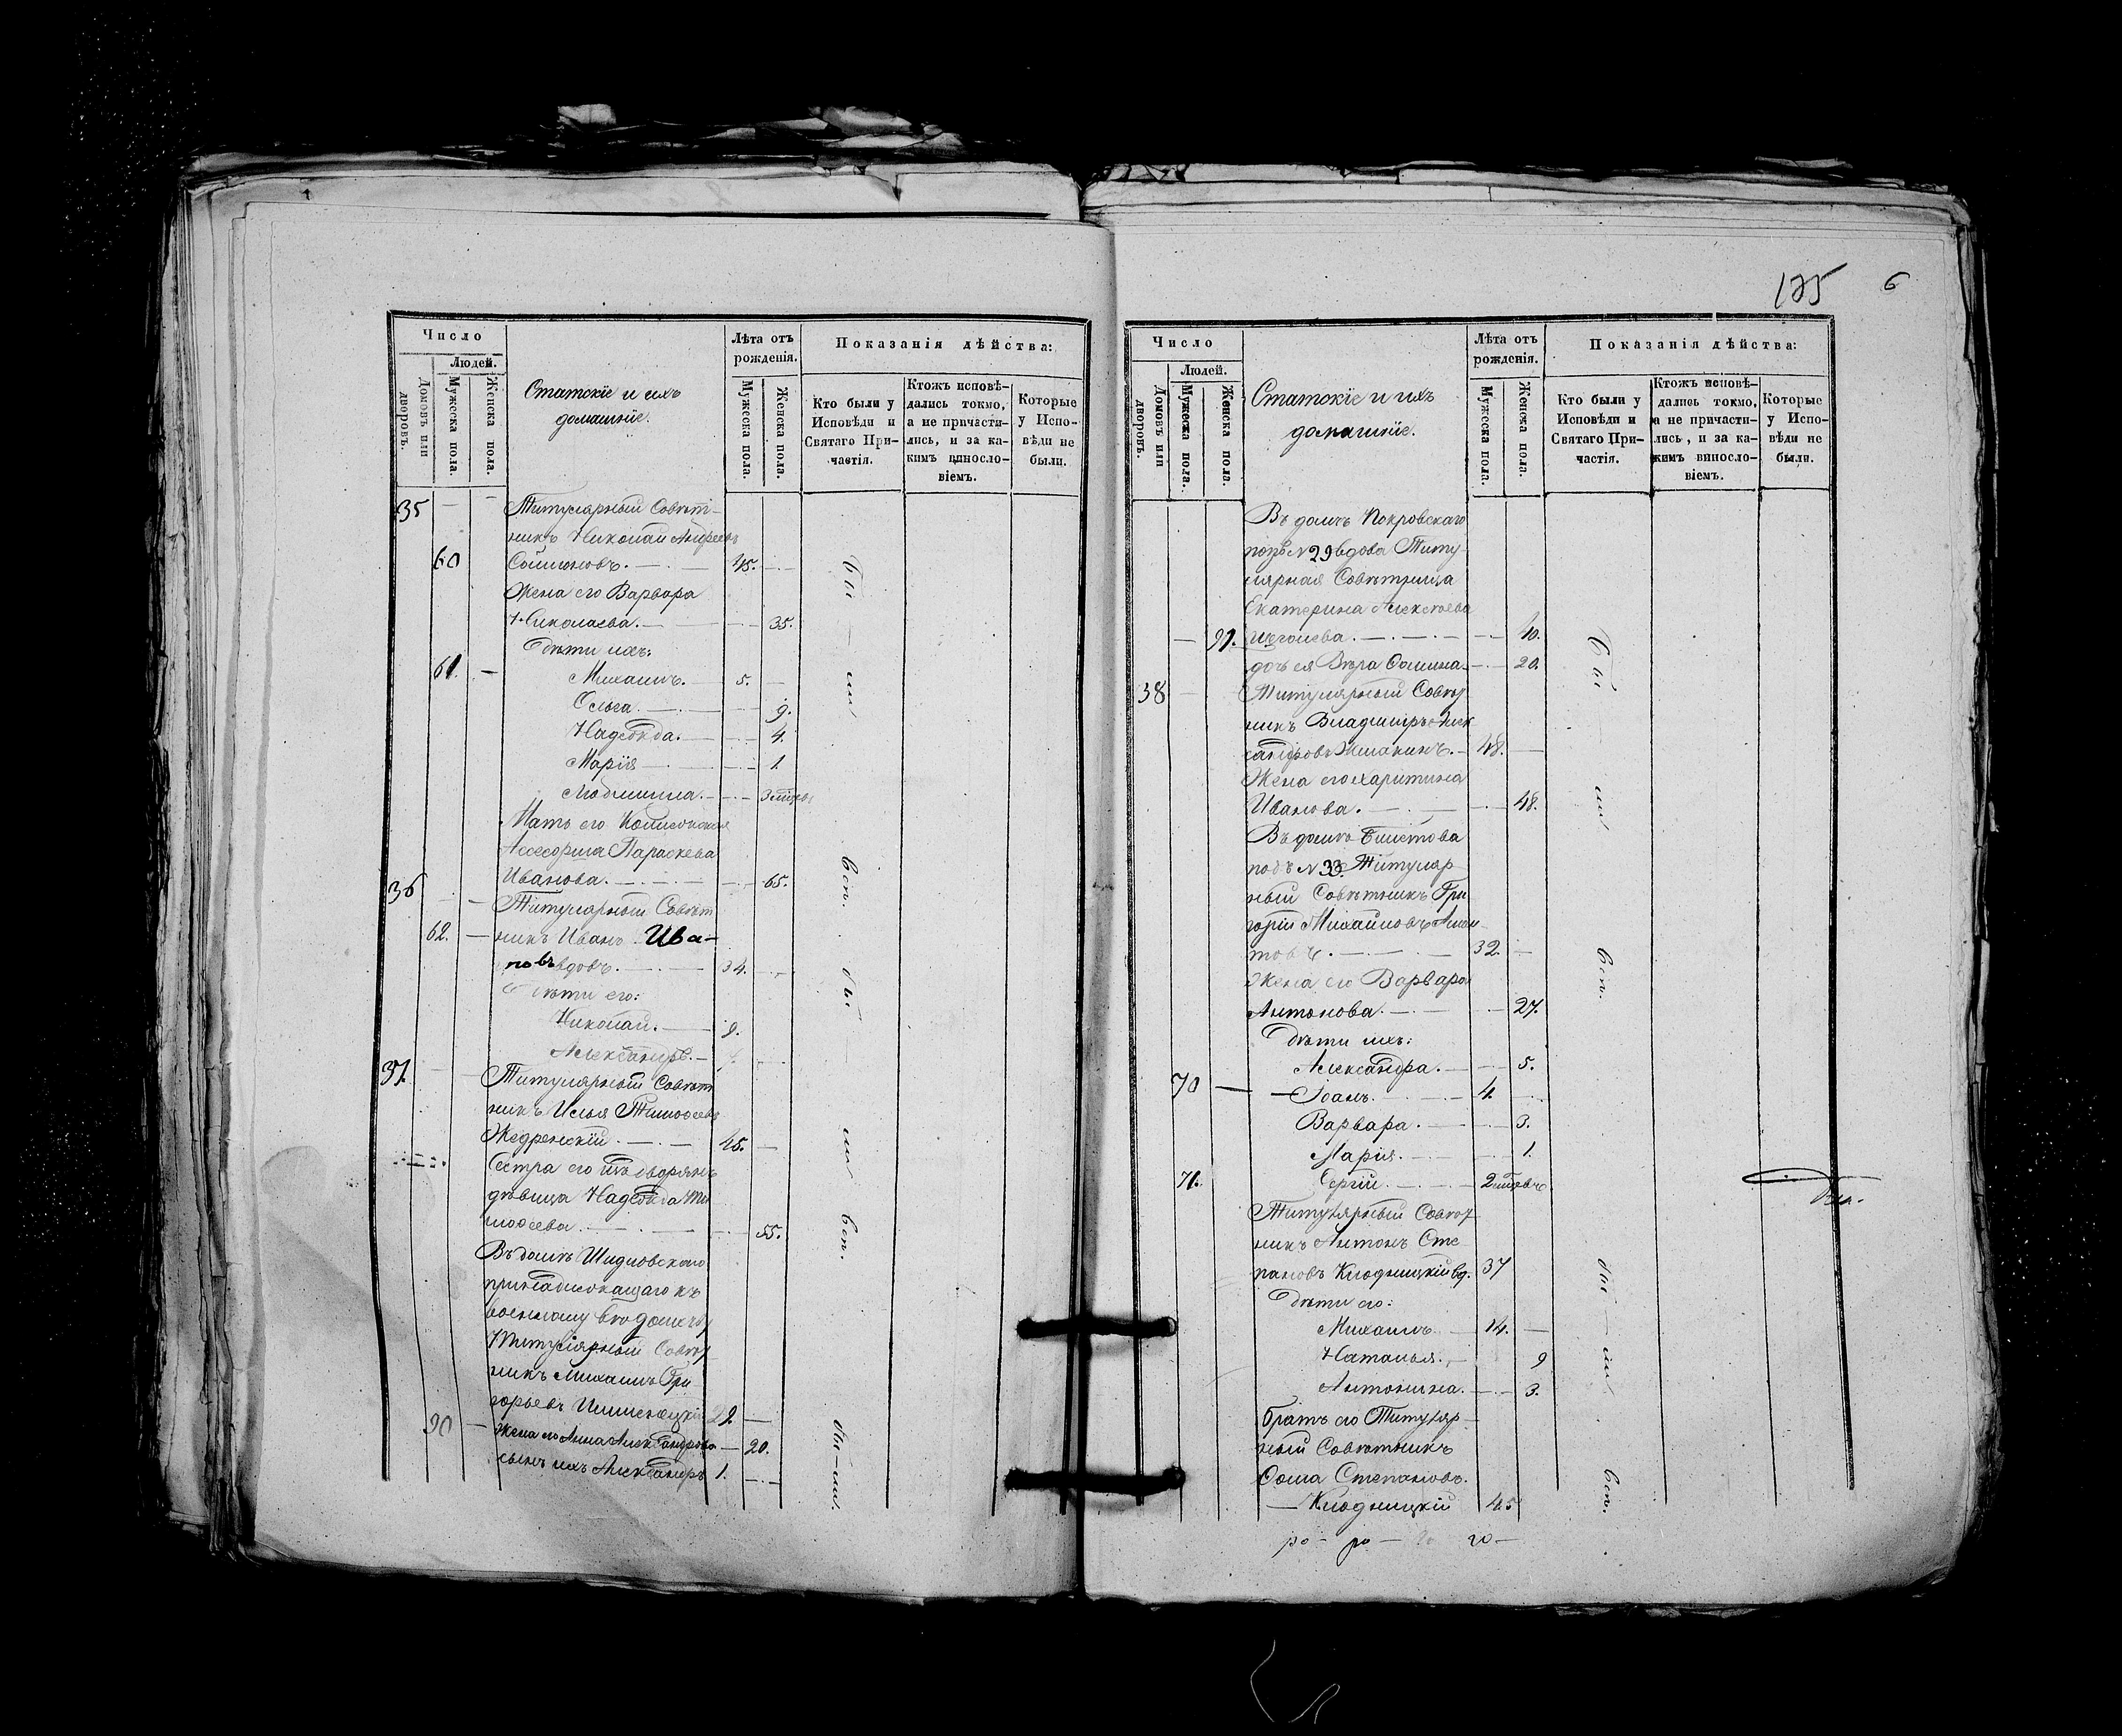 Число
Людей.
Домовъ или дворовъ.
Мужеска пола.
Женска пола.
Статскіе и ихъ
домашніе.
Лѣта отъ
рожденія.
Мужеска пола.
Женска пола.
Показанія дѣйства:
Кто были у
Исповѣди и
Святаго При-
частія.
Ктожъ исповѣ-
дались токмо,
а не причасти-
лись, и за ка-
кимъ винносло-
віемъ.
Которые
у Испо-
вѣди не
были.
35 Титулярный Совѣт-
никъ Николай Андреевъ
60 45.
Жена его Варвара
Николаева. 35.
Дѣти ихъ:
61. Михаилъ. 5.
Ольга. 9.
Надежда. 4.
Марія 1.
Людмилла. 3
Мать его
Параскева
Иванова. 65.
36 Титулярный Совѣт
62. никъ Иванъ Ива-
новъ вдовъ. 34.
Дѣти его:
Николай. 9.
Александръ.
37. Титулярный Совѣт
никъ Илья Тимоѳеевъ
Жедренскій 45.
Сестра его изъ дворянъ
дѣвица Надежда Ти
моѳеева. 55.
Въ домѣ Шидловскаго
принадлежащаго къ
военному вѣдомству
Титулярный Совѣт
никъ Михаилъ Гри
горьевъ
90 Жена его Анна Александрова 20.
сынъ ихъ Александръ 1.
бы — ли
всп.
бы — ли
всп.
бы — ли.
175 6
Число
Людей.
Домовъ или дворовъ.
Мужеска пола.
Женска пола.
Статскіе и ихъ
домашніе.
Лѣта отъ
рожденія.
Мужеска пола.
Женска пола.
Показанія дѣйства:
Кто были у
Исповѣди и
Святаго При-
частія.
Ктожъ исповѣ-
дались токмо,
а не причасти-
лись, и за ка-
кимъ винносло-
віемъ.
Которые
у Испо-
вѣди не
были.
Въ домѣ Покровскаго
подъ N 29 вдова Титу
лярная Совѣтница
Екатерина Алексѣева
91. 40.
дочь ея Вѣра Ѳомина. 20.
38 Титулярный Совѣт
никъ Владиміръ Алек
сандровъ 48.
Жена его Харитина
Иванова. 48.
Въ домѣ
подъ N 33. Титуляр
ный Совѣтникъ Гри
горій Михайловъ
товъ. 32.
Жена его Варвара
Антонова. 27.
Дѣти ихъ:
Александра. 5.
70 Іоанъ. 4.
Варвара. 3.
Марія. 1.
71. Сергій. 2
Титулярный Совѣт
никъ Антонъ Сте
пановъ Клодницкій вд. 37
Дѣти его:
Михаилъ 14.
Наталья. 9
Антонина. 3.
братъ его Титуляр
ный Совѣтникъ
Ѳома Степановъ.
Клодницкій 45
бы — ли
всп.
бы — ли
всп.